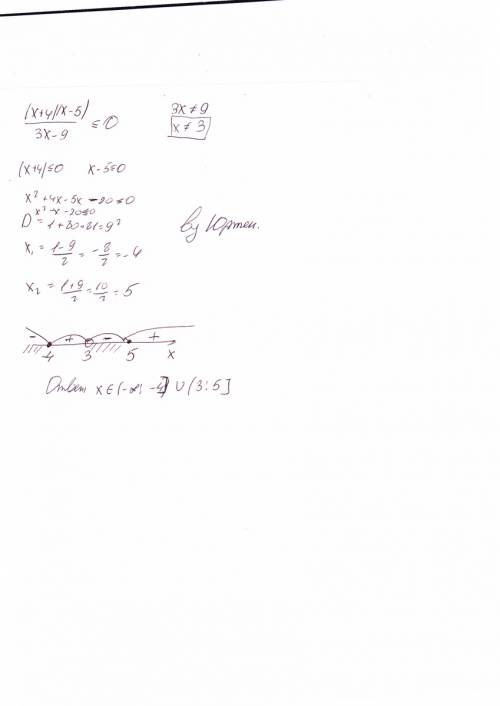 (x+4)(x-5)
3x-9 ≤ 0
3x ≠ 9
x ≠ 3
(x+4)≤0 x-5≤0
x² +4x-5x-20≤0
x²-x-20≤0
D = 1+80=81=9²
x₁ = 1-9/2 = -8/2 = -4
x₂ = 1+9/2 = 10/2 = 5
by
- + - +
4 3 5 x
Ответ x∈(-∞; -4] ∪ (3;5]